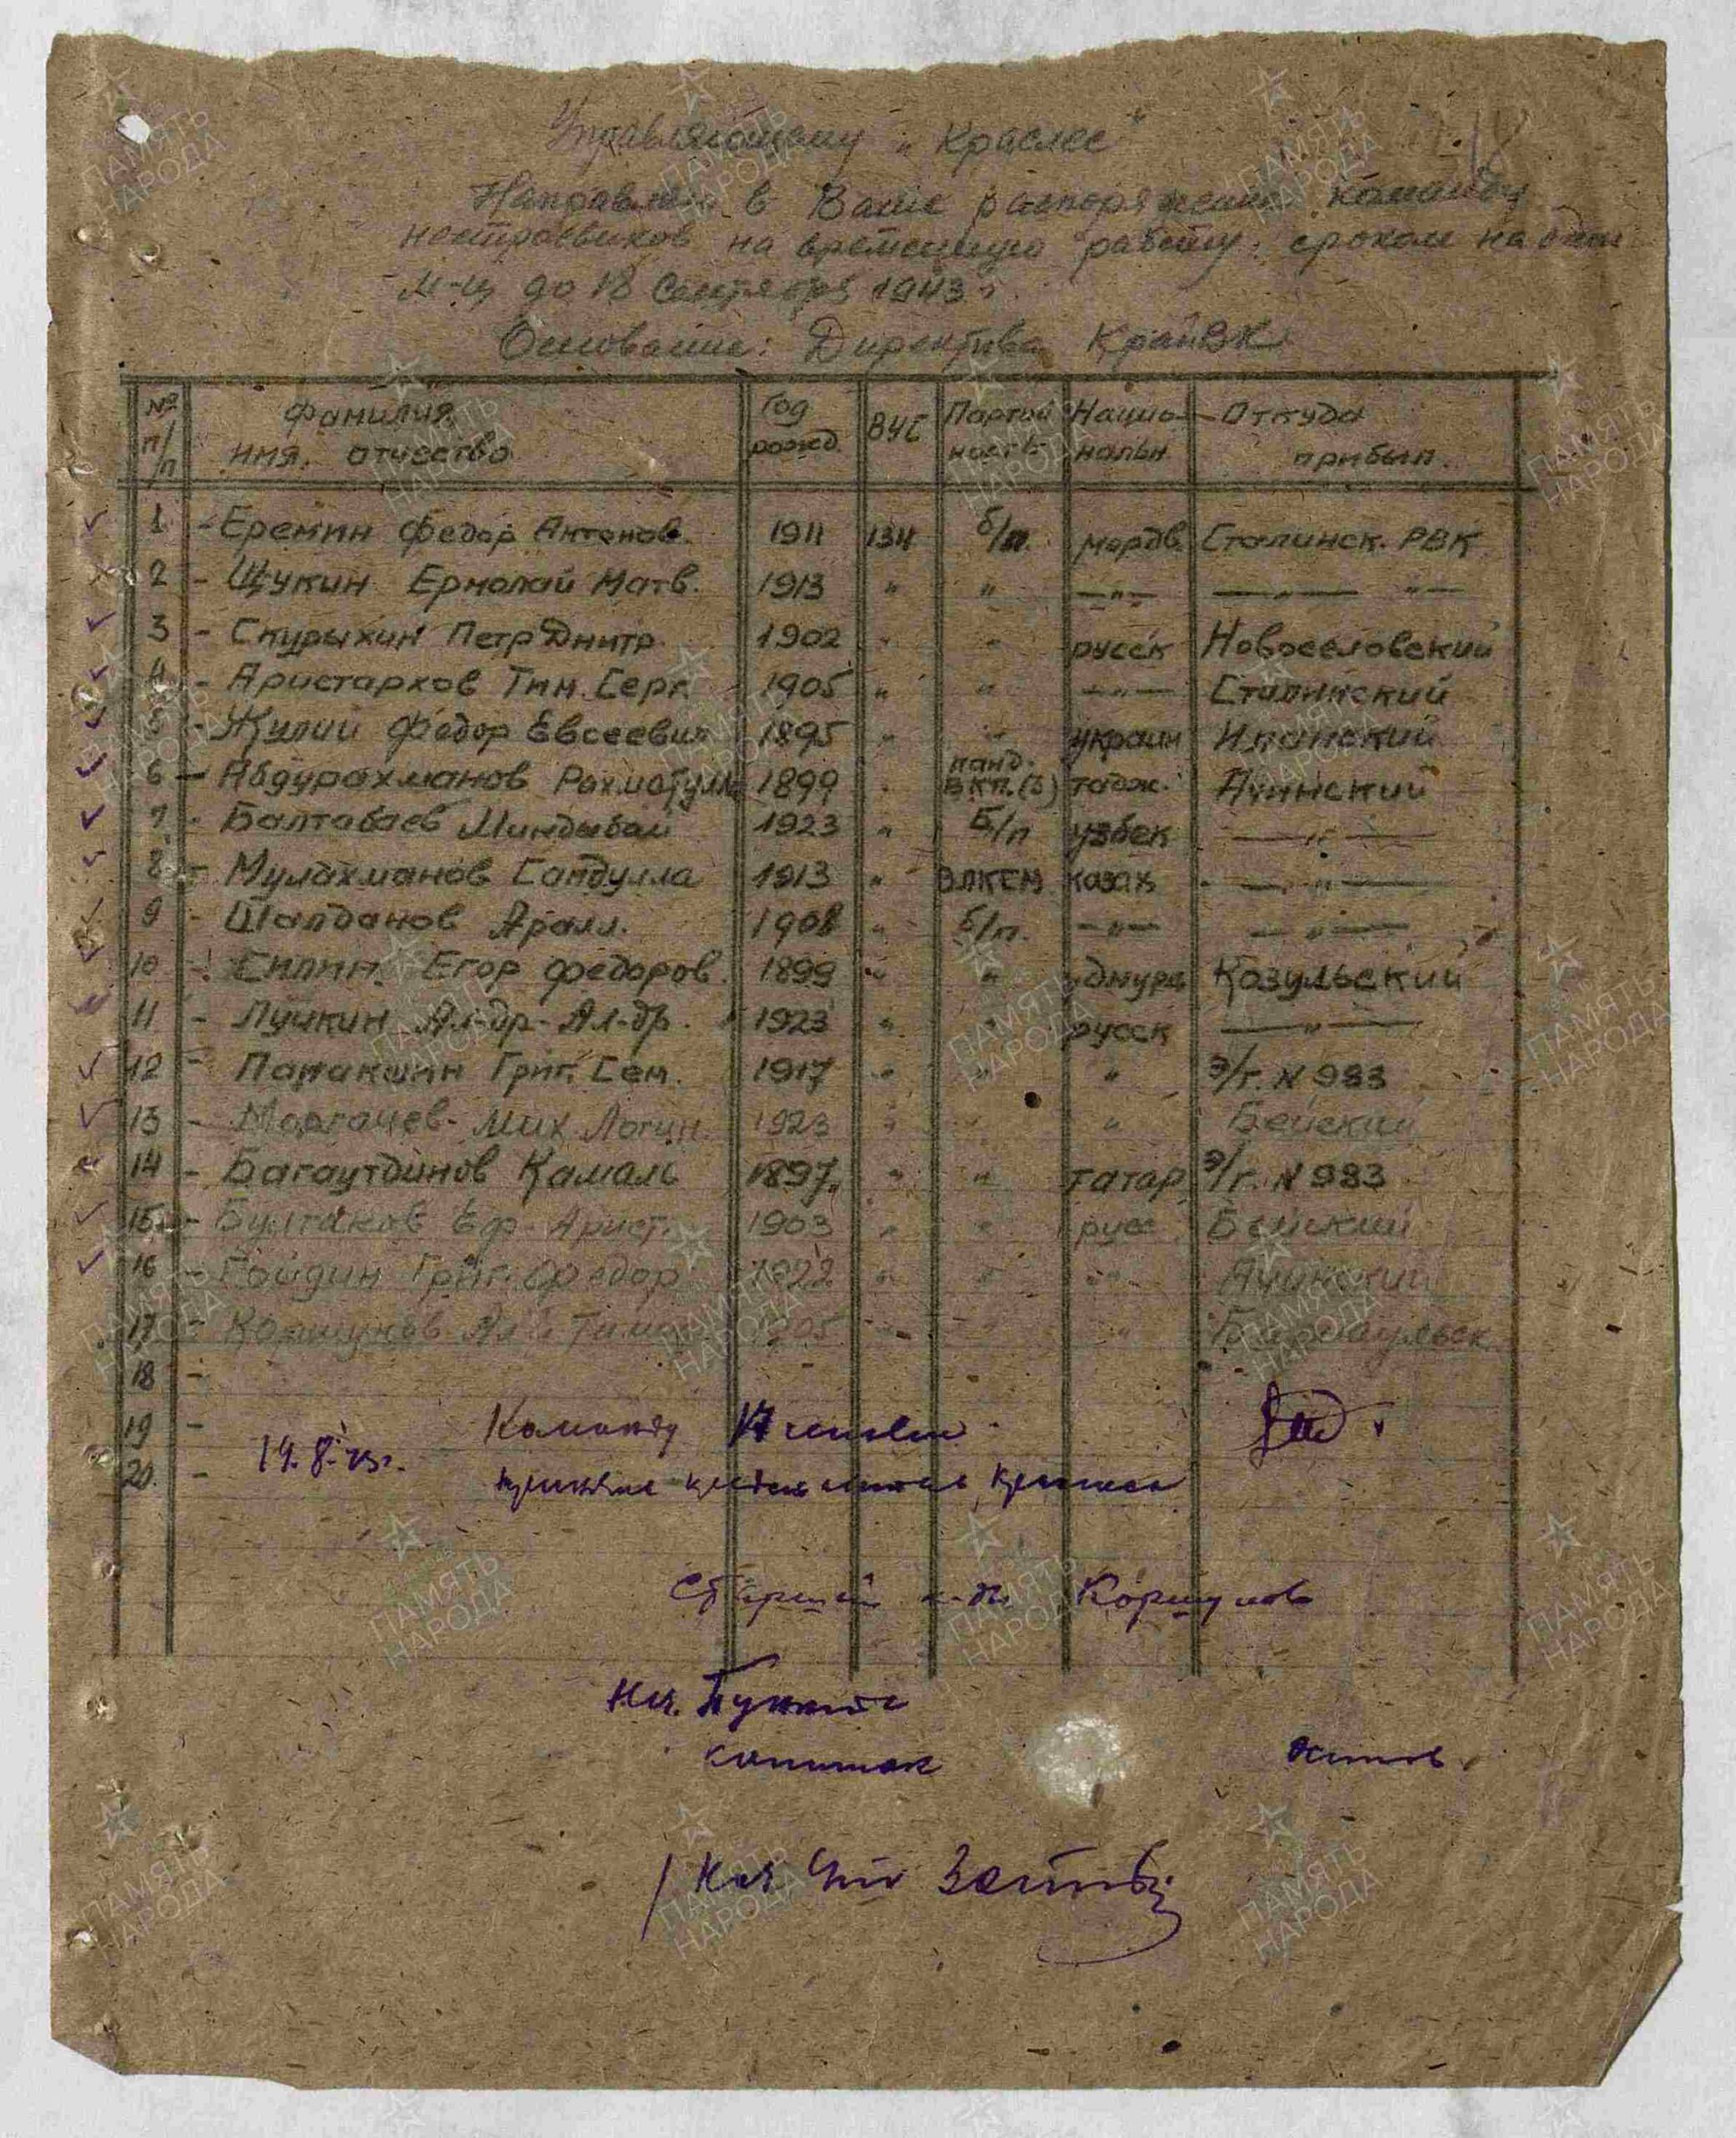 18
Управляющему "Краслес"
Направляю в Ваше распоряжение команду
нестроевиков на временную работу, сроком на один
м-ц до 18 Сентября 1943 г.
Основание: Директива КрайВК
№ п/п Фамилия, имя, отчество Год рожд. ВУС Партийность Национальн. Откуда прибыл.
1 - Еремин Федор Антонов. 1911 134 б/п. мордв. Сталинск. РВК
2 - Щукин Ермолай Матв. 1913 " " —"— —"— "—
3 - Скурыхин Петр Дмитр. 1902 " " русск Новоселовский
4 - Аристархов Тим. Серг. 1905 " " —"— Сталинский
5 - Жулий Федор Евсеевич 1895 " " украин Иланский
6 - Абдурахманов Рахматулла 1899 " канд. ВКП.(б) тадж. Ачинский
7 - Балтабаев Миндыбай 1923 " Б/п узбек —"—
8 - Мулахманов Сапдулла 1913 " ВЛКСМ казах —"—
9 - Шалданов Аралл. 1908 " б/п. —"— —"—
10 - Силин Егор Федоров. 1899 " " удмурт Козульский
11 - Лучкин Ал-др Ал-др. 1923 " " русск —"—
12 - Панакшин Григ. Сем. 1917 " " " э/г. N 983
13 - Моргачев Мих Логин. 1923 " " " Бейский
14 - Багаутдинов Камаль 1897 " " татар э/г. N 983
15 - Булгаков Еф. Арист. 1903 " " русс Бейский
16 - Гойдин Григ. Федор 1922 " " " Ачинский
17 - Коршунов Ал. Тимо 1905 " " " Барнаульск
18 -
19 - Команду
20. - 14.8.43г.
Старший к-ды Коршунов
Нач. Пункта
капитан
Нач
ПАМЯТЬ НАРОДА